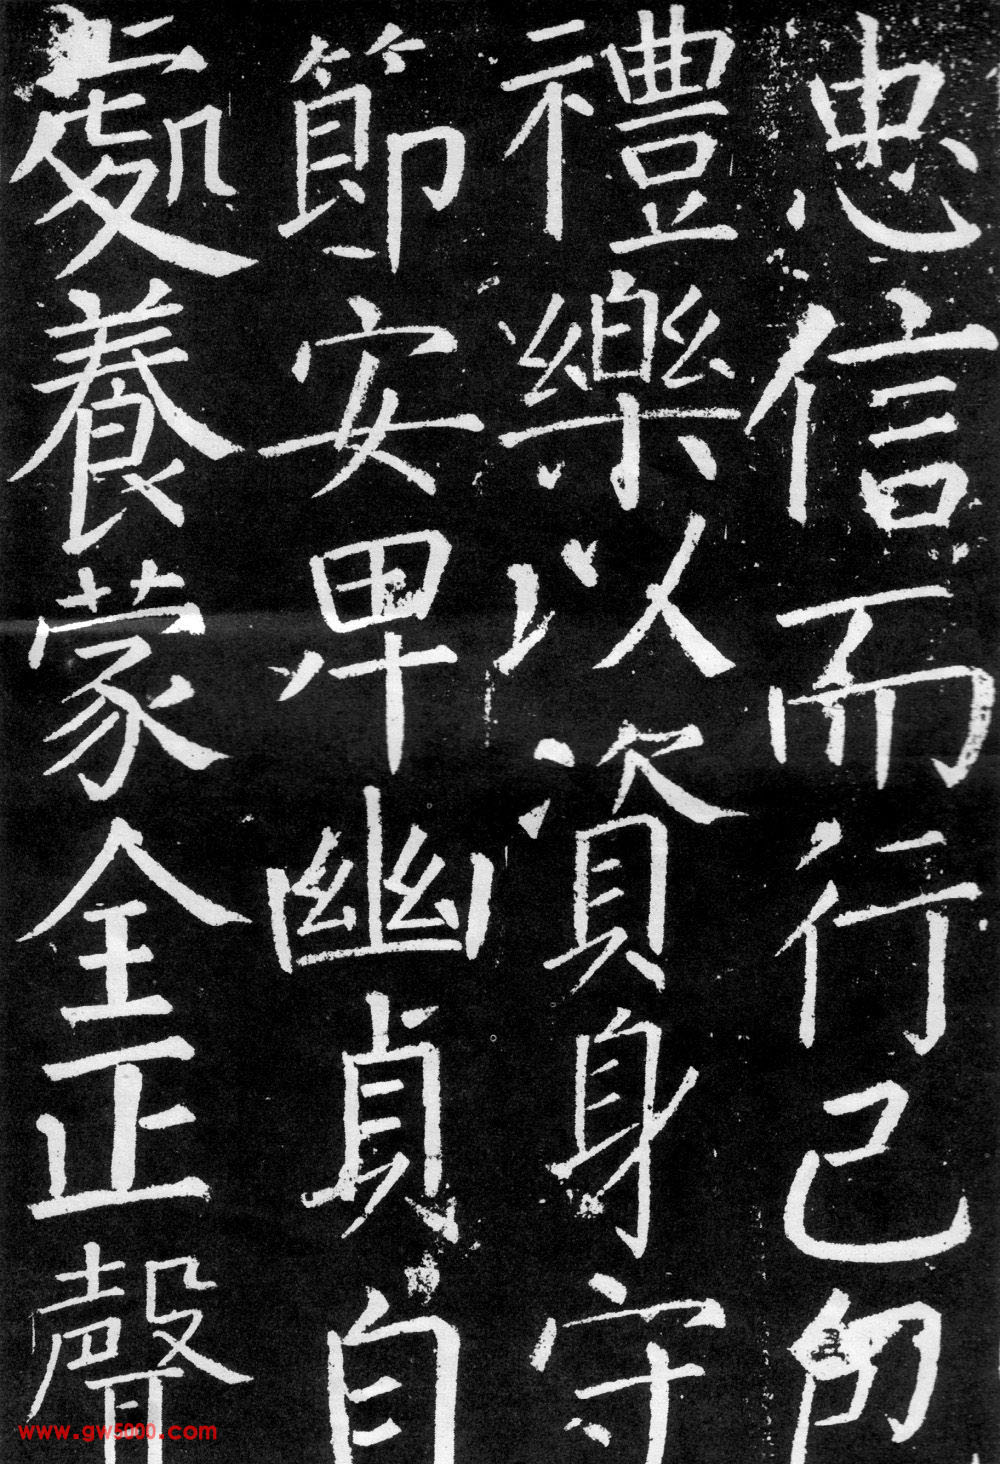 忠信而行己
禮樂以資身守
節安卑幽貞自
處養蒙全正聲
www.gw5000.com